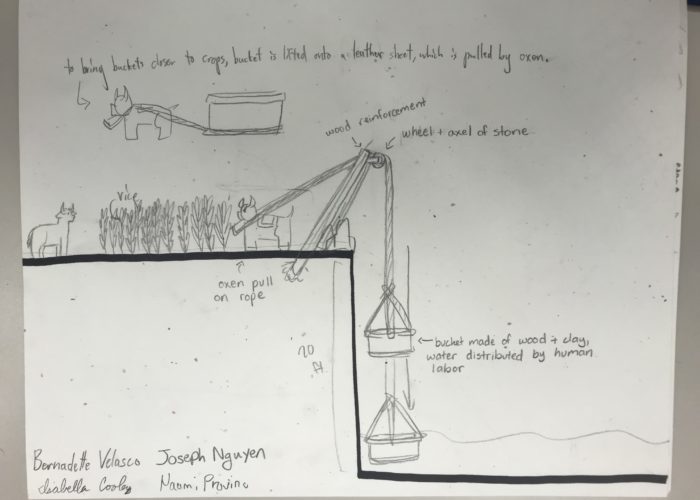 to bring buckets closer to crops, bucket is lifted onto a leather sheet, which is pulled by oxen.
wood reinforcement
wheel + axel of stone
rice
oxen pull
on rope
20
ft
bucket made of wood + clay,
water distributed by human
labor
Bernadette Velasco Joseph Nguyen
Isabella Naomi